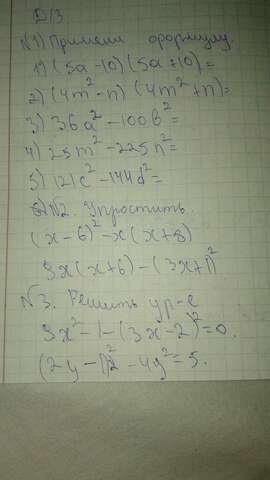 Д/З
№1) Примени формулу.
1) (5a-10)(5a+10)=
2) (4m²-n)(4m²+n)=
3) 36a²-100b²=
4) 25m²-225n²=
5) 121c²-144d²=
№2. Упростить.
(x-6)²-x(x+8)
3x(x+6)-(3x+1)²
№3. Решить ур-е
9x²-1-(3x-2)²=0.
(2y-1)²-4y²=5.